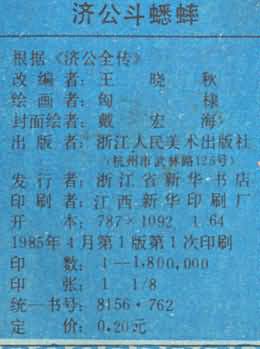 济公斗蟋蟀
根据《济公全传》
改编者：王晓秋
绘画者：匋棣
封面绘者：戴宏海
出版者：浙江人民美术出版社
（杭州市武林路125号）
发行者：浙江省新华书店
印刷者：江西新华印刷厂
开本：787×1092 1/64
1985年4月第1版第1次印刷
印数：1—1,800,000
印张：1 1/8
统一书号：8156·762
定价：0.20元